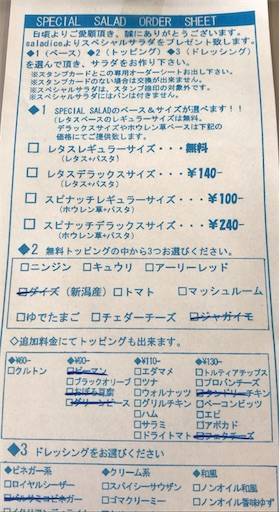 SPECIAL SALAD ORDER SHEET
日頃よりご愛顧頂き、誠にありがとうございます。
saladiceよりスペシャルサラダをプレゼント致します。
◆1（ベース）◆2（トッピング）◆3（ドレッシング）
を選んで頂き、サラダをお作り下さい。
※スタンプカードとこの専用オーダーシートお出し下さい。
※スタンプカードのない場合は交換が出来ません。
※スペシャルサラダは、スタンプ捺印の対象外です。
※スペシャルサラダにパンは付きません。
◆1 SPECIAL SALADのベース&サイズが選べます！！
(レタスベースのレギュラーサイズは無料。
デラックスサイズやホウレン草ベースは下記の
価格にてご提供致します。
□ レタスレギュラーサイズ・・・無料
(レタス+パスタ)
□ レタスデラックスサイズ・・・¥140-
(レタス+パスタ)
□ スピナッチレギュラーサイズ・・・¥100-
(ホウレン草+パスタ)
□ スピナッチデラックスサイズ・・・¥240-
(ホウレン草+パスタ)
◆2 無料トッピングの中から3つお選びください。
□ニンジン □キュウリ □アーリーレッド
□ダイズ(新潟産) □トマト □マッシュルーム
□ゆでたまご □チェダーチーズ □ジャガイモ
◇追加料金にてトッピングも出来ます。
◆¥60- ◆¥90- ◆¥110- ◆¥130-
□クルトン □ピーマン □エダマメ □トルティアチップス
□ブラックオリーブ □ツナ □プロバンチーズ
□おぼろ豆腐 □ウォルナッツ □タンドリーチキン
□グリーンピース □グリルチキン □ベーコンビッツ
□ハム □エビ
□サラミ □アボカド
□ドライトマト □フェタチーズ
◆3 ドレッシングをお選びください
◆ビネガー系 ◆クリーム系 ◆和風
□ロイヤルシーザー □スパイシーサウザン □ノンオイル和風
□バルサミコビネガー □ゴマクリーミー □ノンオイル香味ゆず